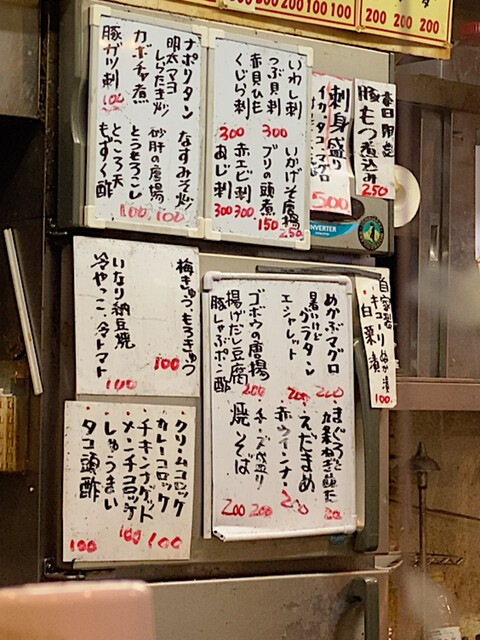 200 200 100 100
200 200 200
春日限定
豚もつ煮込み
250
刺身盛り
500
いわし刺
つぶ貝刺
赤貝ひも
くじら刺
300
300
いかげそ唐揚
ブリの頭煮
赤エビ刺
あじ刺
250
150
300
300
ナポリタン
明太マヨ
しらたき炒
カボチャ煮
豚ガツ刺
100
なすみそ炒
砂肝の唐揚
とうもろこし
ところ天
もずく酢
100
100
INVERTER
自家製
キューリ
白菜漬
100
めかぶマグロ
暑いけど
グラタン
エシャレット
ゴボウの唐揚
揚げだし豆腐
豚しゃぶポン酢
200
200
200
まぐろと
えだまめ
赤ウインナー
チーズ盛り
焼そば
200
200
200
梅きゅう もろきゅう
いなり納豆焼
冷やっこ 冷トマト
100
100
クリームコロッケ
カレーコロッケ
チキンナゲット
メンチコロッケ
しゅうまい
タコ頭酢
100
100
100